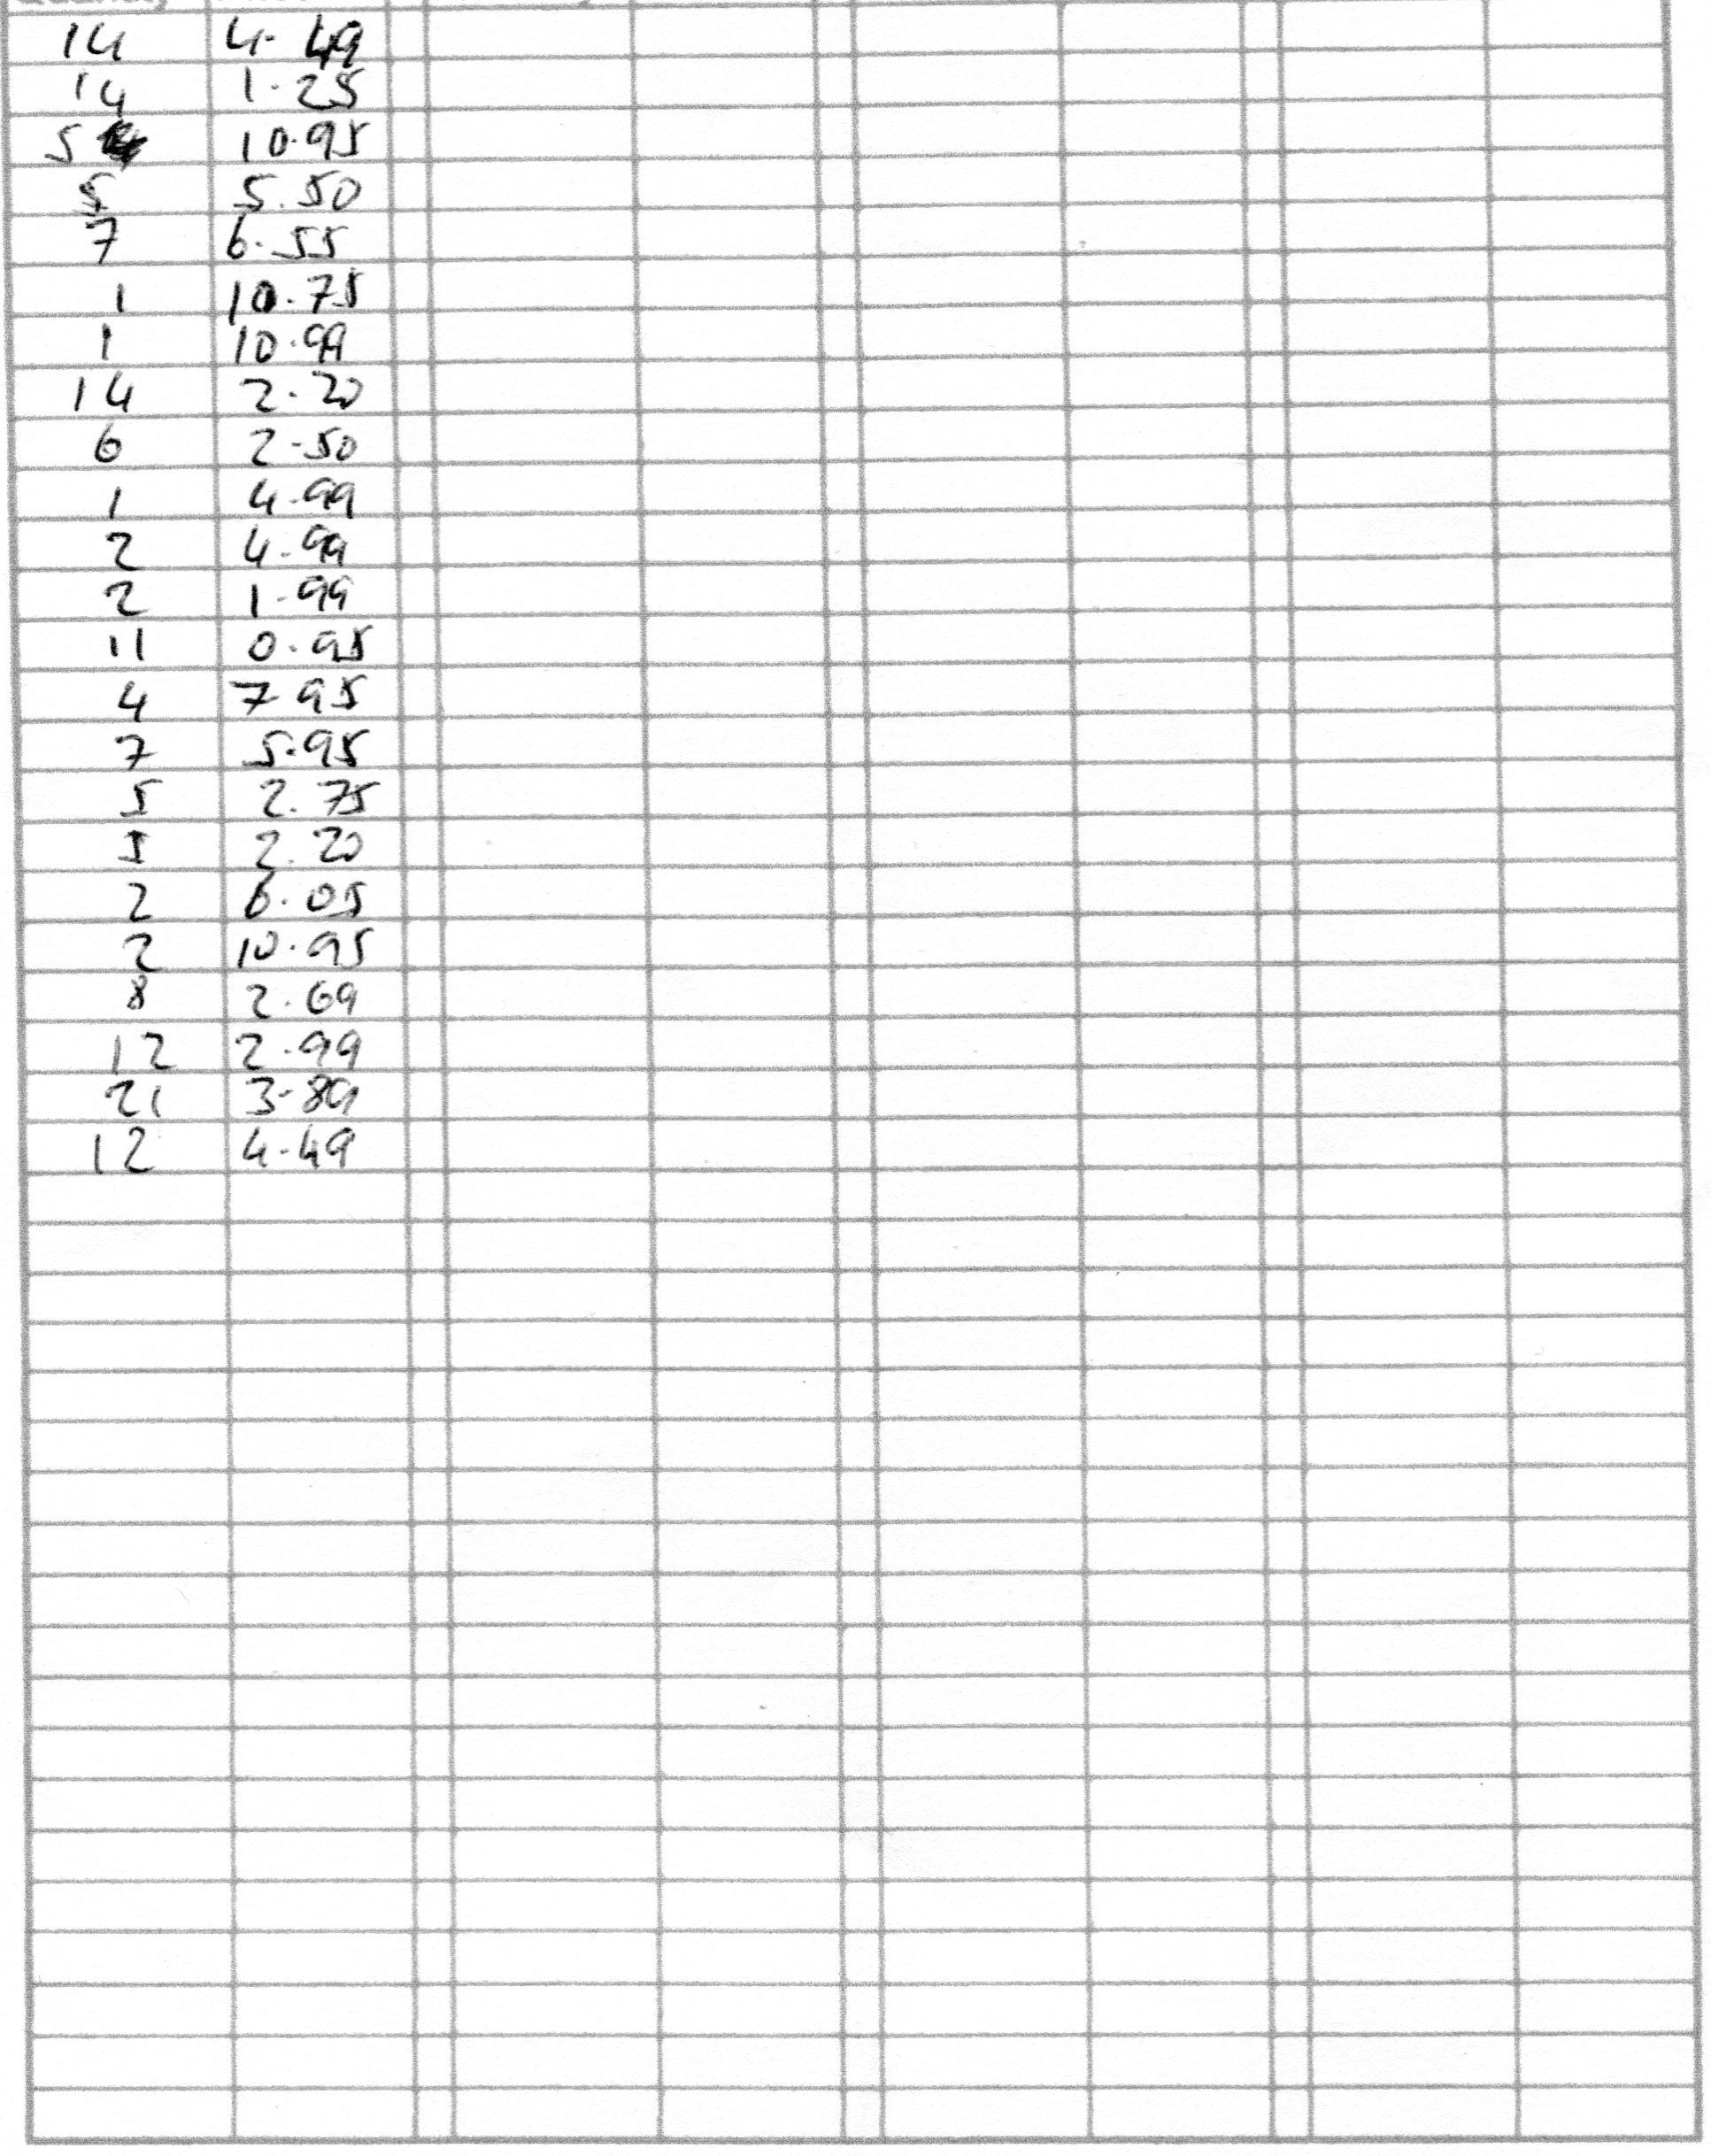 14 4.49
14 1.25
5 10.95
5 5.50
7 6.55
1 10.75
1 10.99
14 2.20
6 2.50
1 4.99
2 4.99
2 1.99
11 0.95
4 7.95
7 5.95
5 2.75
5 2.20
2 6.05
2 10.95
8 2.69
12 2.99
21 3.89
12 4.49